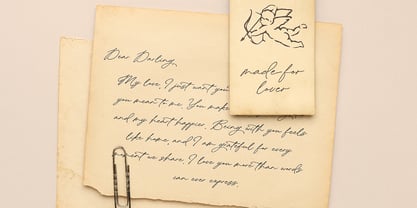 Dear Darling,
My love, I just want you
you mean to me. You make
and my heart happier. Being with you feels
like home, and I am grateful for every
we share. I love you more than words
can ever express.
made for
lover